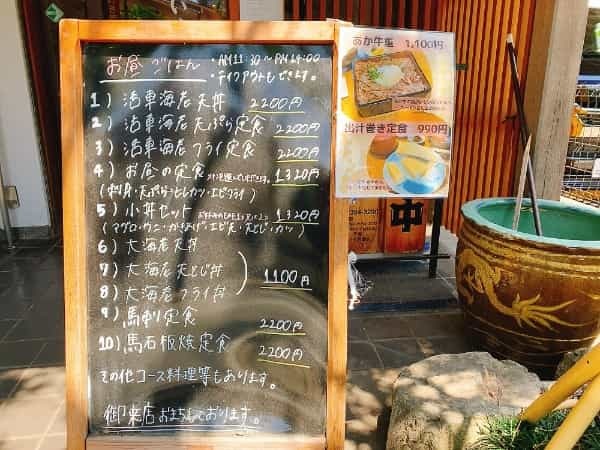 お昼ごはん
・AM11:30〜PM14:00
・テイクアウトもできます。
1）活車海老天丼 2200円
2）活車海老天ぷら定食 2200円
3）活車海老フライ定食 2200円
4）お昼の定食 1320円
(刺身・天ぷら・ヒレカツ・エビフライ)
5）小丼セット 1320円
(マグロ・ウニ・かきあげ・エビ天・天とじ・カツ)
6）大海老天丼
7）大海老天とじ丼 1100円
8）大海老フライ丼
9）馬刺定食 2200円
10）馬石板焼定食 2200円
その他コース料理等もあります。
御来店おまちしております。
あか牛重 1,100円
出汁巻き定食 990円
中